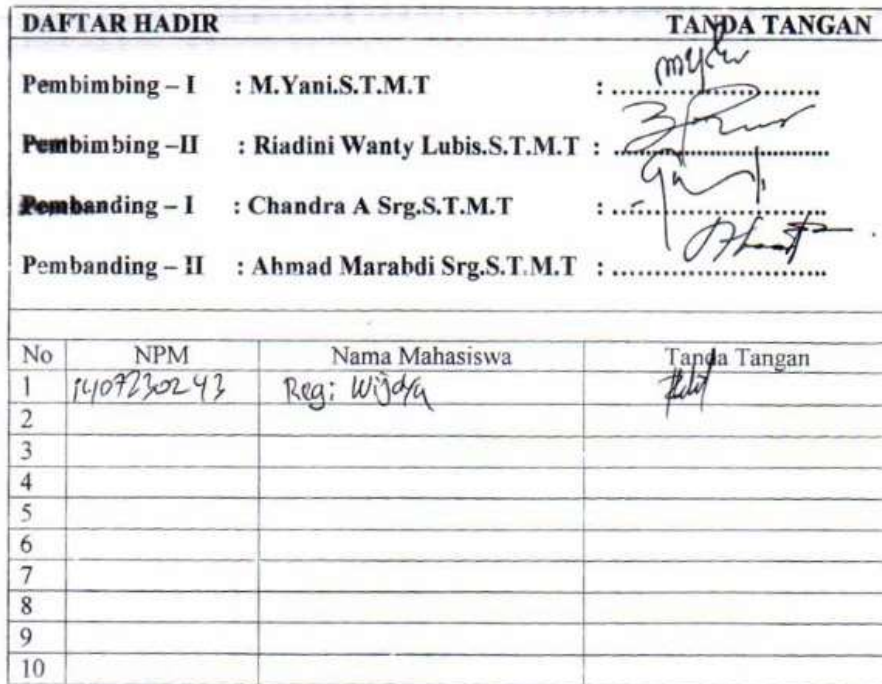 DAFTAR HADIR TANDA TANGAN
Pembimbing – I : M.Yani.S.T.M.T : ..............................
Pembimbing –II : Riadini Wanty Lubis.S.T.M.T : ..............................
Pembanding – I : Chandra A Srg.S.T.M.T : ..............................
Pembanding – II : Ahmad Marabdi Srg.S.T.M.T : ..............................
No NPM Nama Mahasiswa Tanda Tangan
1 1407230243 Regi Wijaya
2
3
4
5
6
7
8
9
10